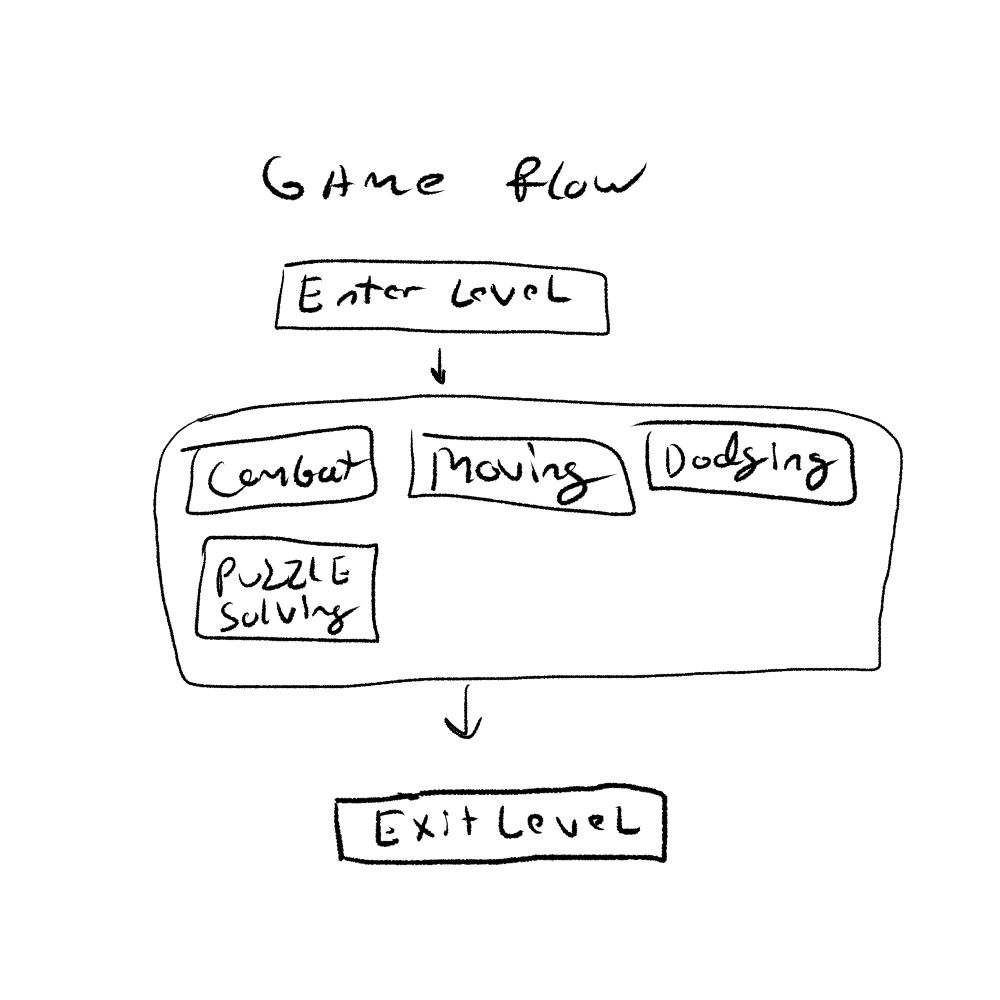 GAMe flow
Enter LeveL
Combat
Moving
Dodging
PUZZLE
Solving
Exit LeveL